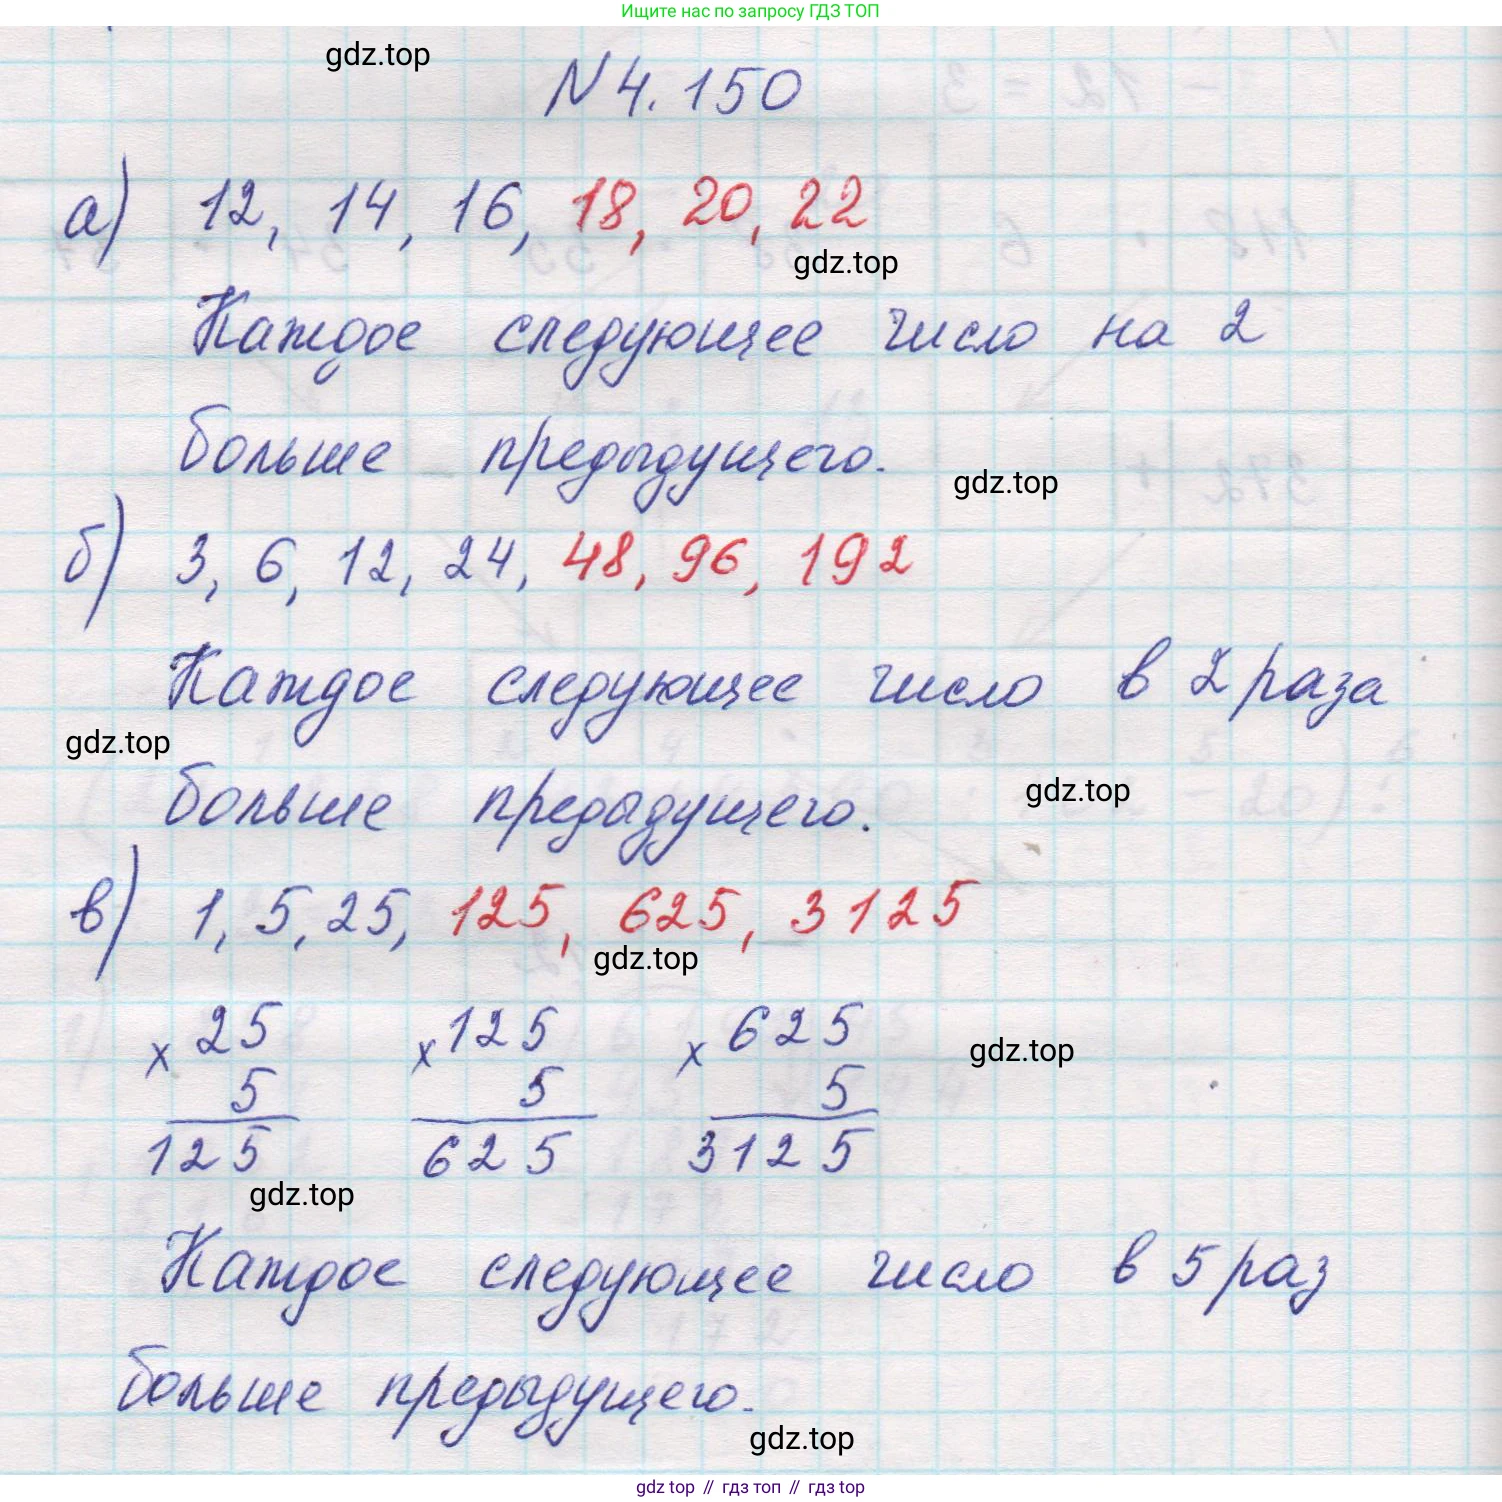 Ищите нас по запросу ГДЗ ТОП
gdz.top
N 4.150
а) 12, 14, 16, 18, 20, 22
gdz.top
Каждое следующее число на 2
больше предыдущего.
gdz.top
б) 3, 6, 12, 24, 48, 96, 192
Каждое следующее число в 2 раза
gdz.top
больше предыдущего.
gdz.top
в) 1, 5, 25, 125, 625, 3125
gdz.top
× 25 × 125 × 625
gdz.top
5 5 5
125 625 3125
gdz.top
Каждое следующее число в 5 раз
больше предыдущего.
gdz.top
gdz top // гдз топ // гдз top